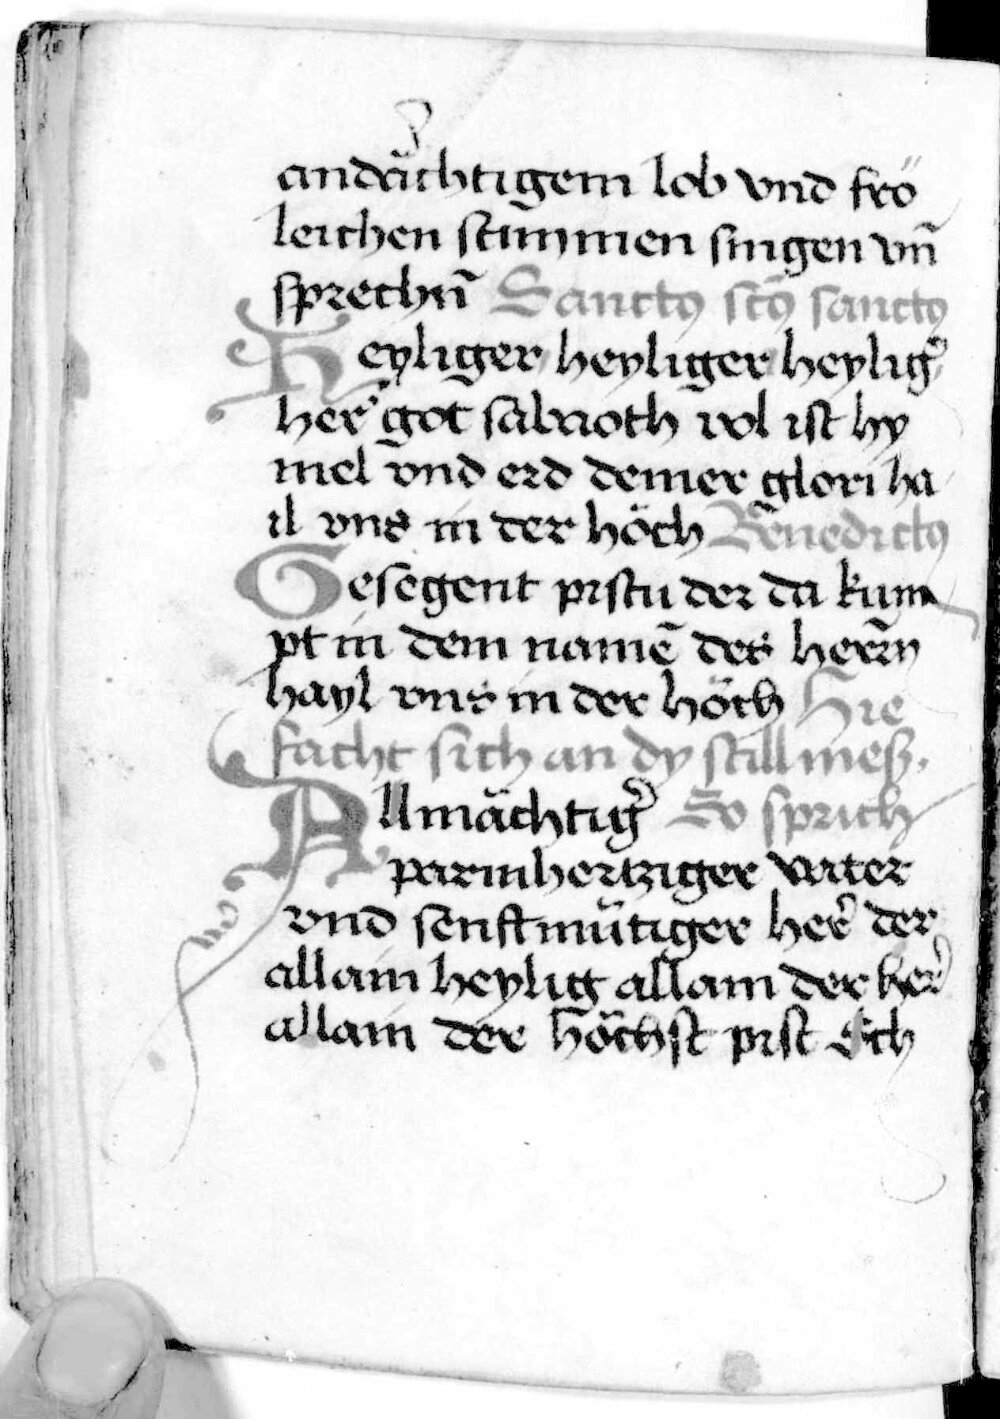 andächtigem lob vnd frö
leichen stimmen singen vn̄
sprechn̄ Sanctꝰ sc̄tꝰ sanctꝰ
Heyliger heyliger heylig̛
her̛ got sabaoth vol ist hy
mel vnd erd deiner glori ha
il vns in der höch Benedictꝰ
Gesegent pistu der da kum
pt in dem namē des herrn̄
hayl vns in der höch Hie
facht sich an dy still meß.
Allmächtig̛ So sprich
parmhertziger vater
vnd senftmütiger her̛ der
allain heylig allain der her̛
allain der höchst pist Sch